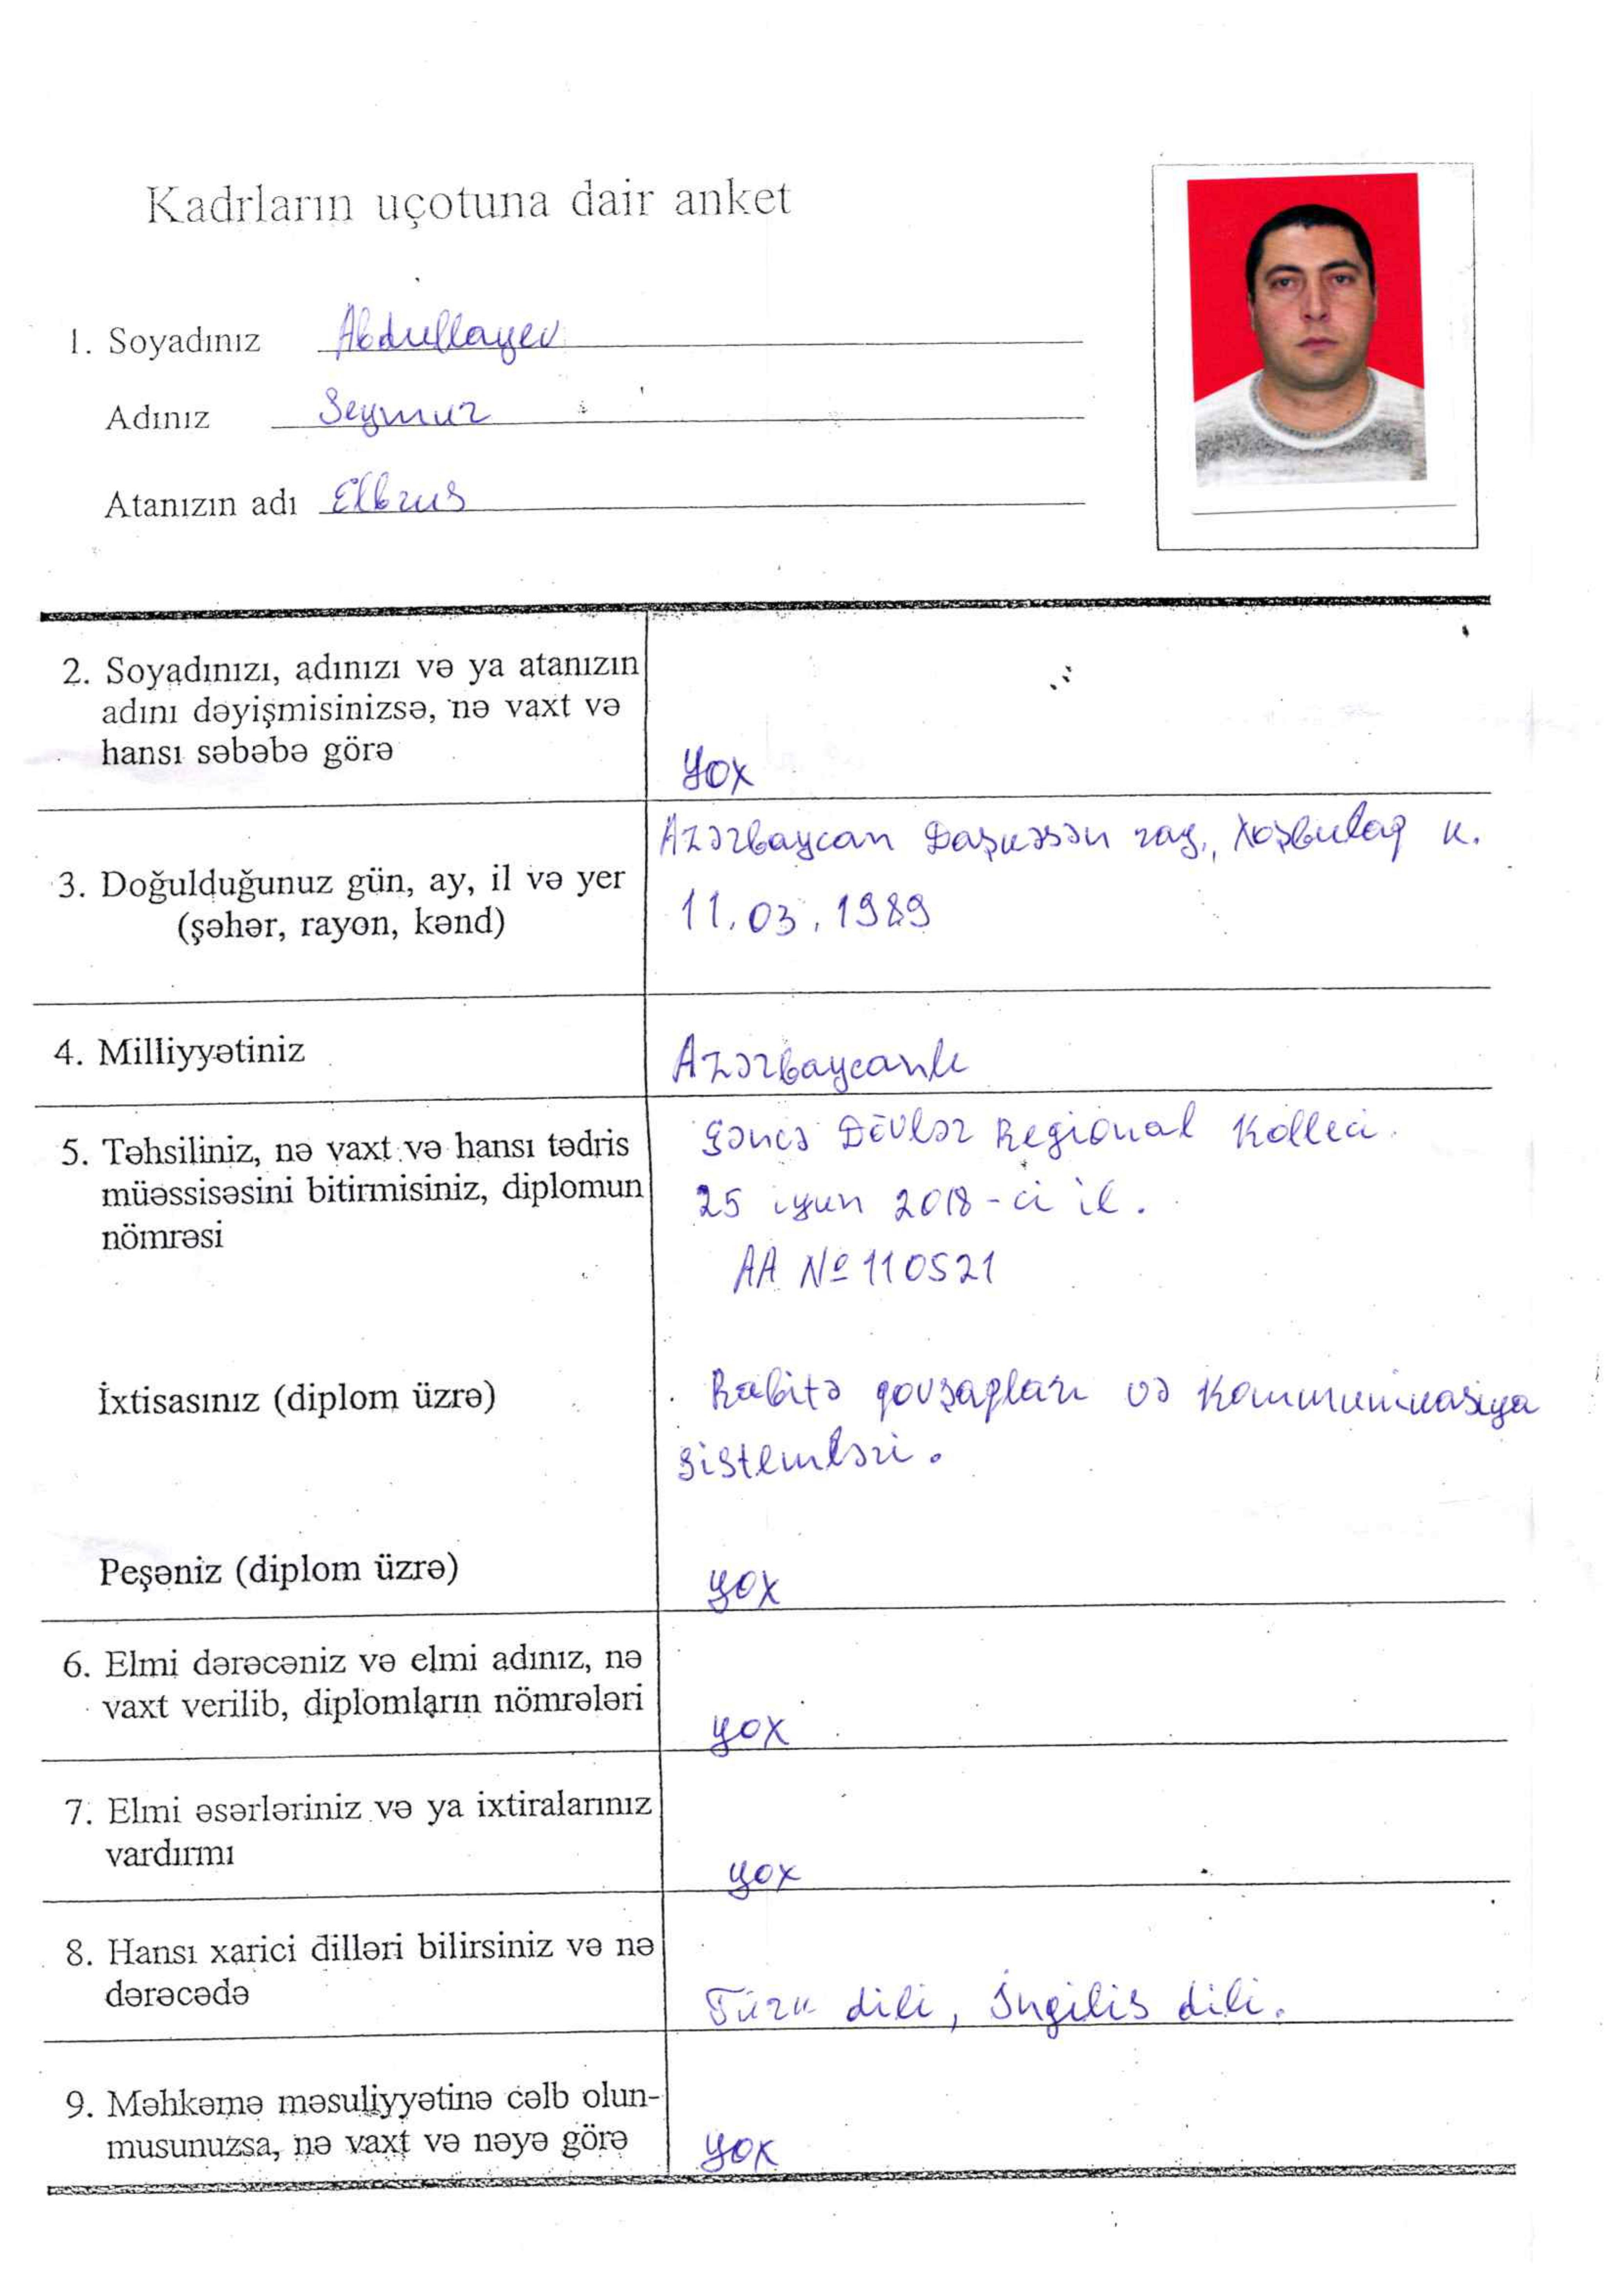 Kadrların uçotuna dair anket
1. Soyadınız Abdullayev
Adınız Seymur
Atanızın adı Elbrus
2. Soyadınızı, adınızı və ya atanızın
adını dəyişmisinizsə, nə vaxt və
hansı səbəbə görə
yox
Azərbaycan Daşkəsən ray., Xoşbulaq k.
3. Doğulduğunuz gün, ay, il və yer
(şəhər, rayon, kənd)
11.03.1989
4. Milliyyətiniz
Azərbaycanlı
5. Təhsiliniz, nə vaxt və hansı tədris
müəssisəsini bitirmisiniz, diplomun
nömrəsi
Gəncə Dövlət Regional Kolleci.
25 iyun 2018-ci il.
AA № 110521
İxtisasınız (diplom üzrə)
Rabitə qovşaqları və Kommunikasiya
sistemləri.
Peşəniz (diplom üzrə)
yox
6. Elmi dərəcəniz və elmi adınız, nə
vaxt verilib, diplomların nömrələri
yox
7. Elmi əsərləriniz və ya ixtiralarınız
vardırmı
yox
8. Hansı xarici dilləri bilirsiniz və nə
dərəcədə
Türk dili, İngilis dili.
9. Məhkəmə məsuliyyətinə cəlb olun-
musunuzsa, nə vaxt və nəyə görə
yox